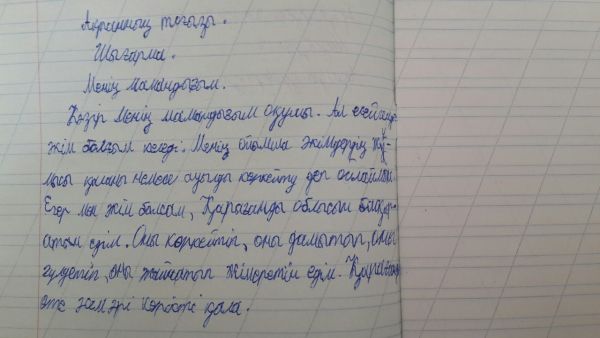 Ақпанның тоғызы.
Шығарма.
Менің мамандығым.
Қазір менің мамандығым оқушы. Ал есейгенде
әкім болғым келеді. Менің ойымша әкімдердің жұ-
мысы қаланы немесе ауылды көркейту деп ойлаймын.
Егер мен әкім болсам, Қарағанды облысын басқар-
атын едім. Оны көркейтіп, оны дамытып, оны
гүлдетіп, оны жайнатып жіберетін едім. Қарағанды
өте әсем әрі көрікті қала.